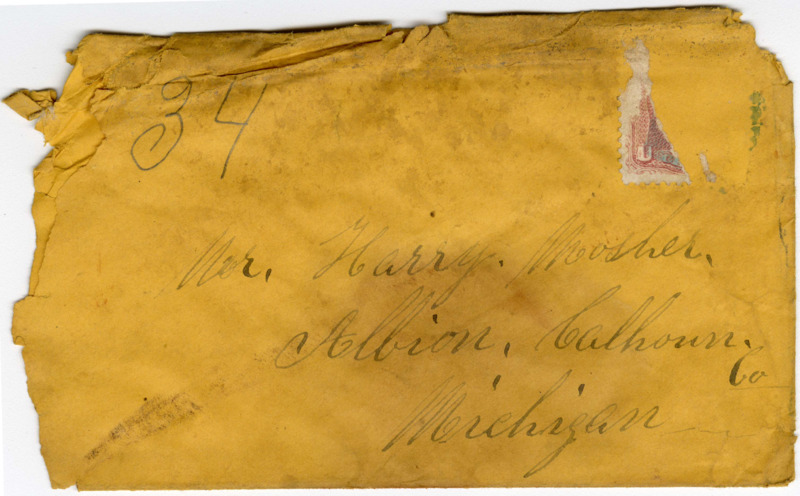 34
U
Mr. Harry. Mosher.
Albion, Calhoun.
Co
Michigan